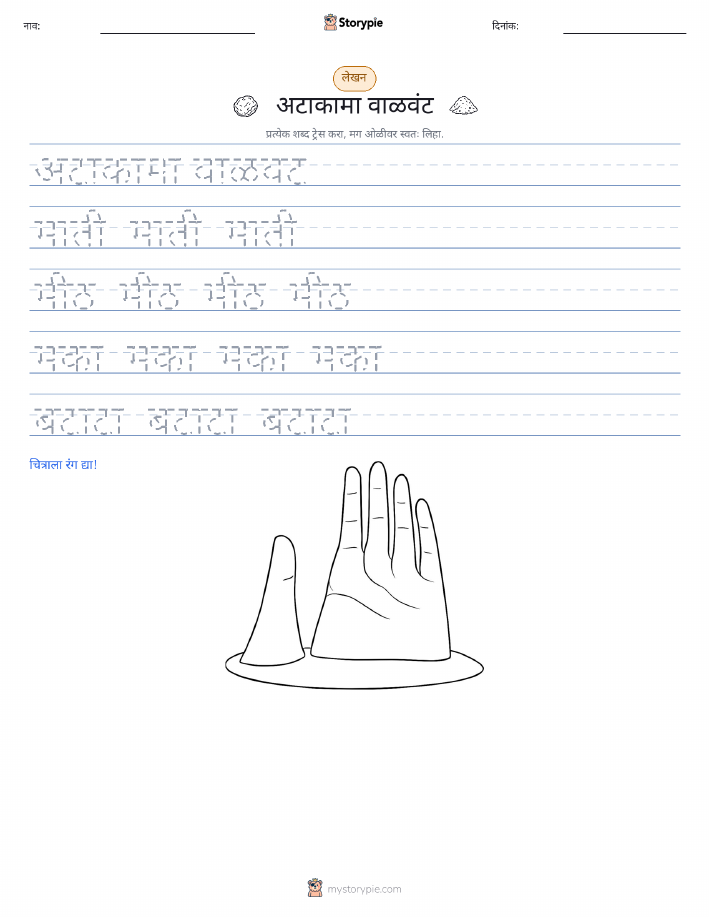 नाव:
Storypie
दिनांक:
लेखन
अटाकामा वाळवंट
प्रत्येक शब्द ट्रेस करा, मग ओळीवर स्वतः लिहा.
अटाकामा वाळवंट
माती माती माती
मीठ मीठ मीठ मीठ
मका मका मका मका
बटाटा बटाटा बटाटा
चित्राला रंग द्या!
mystorypie.com